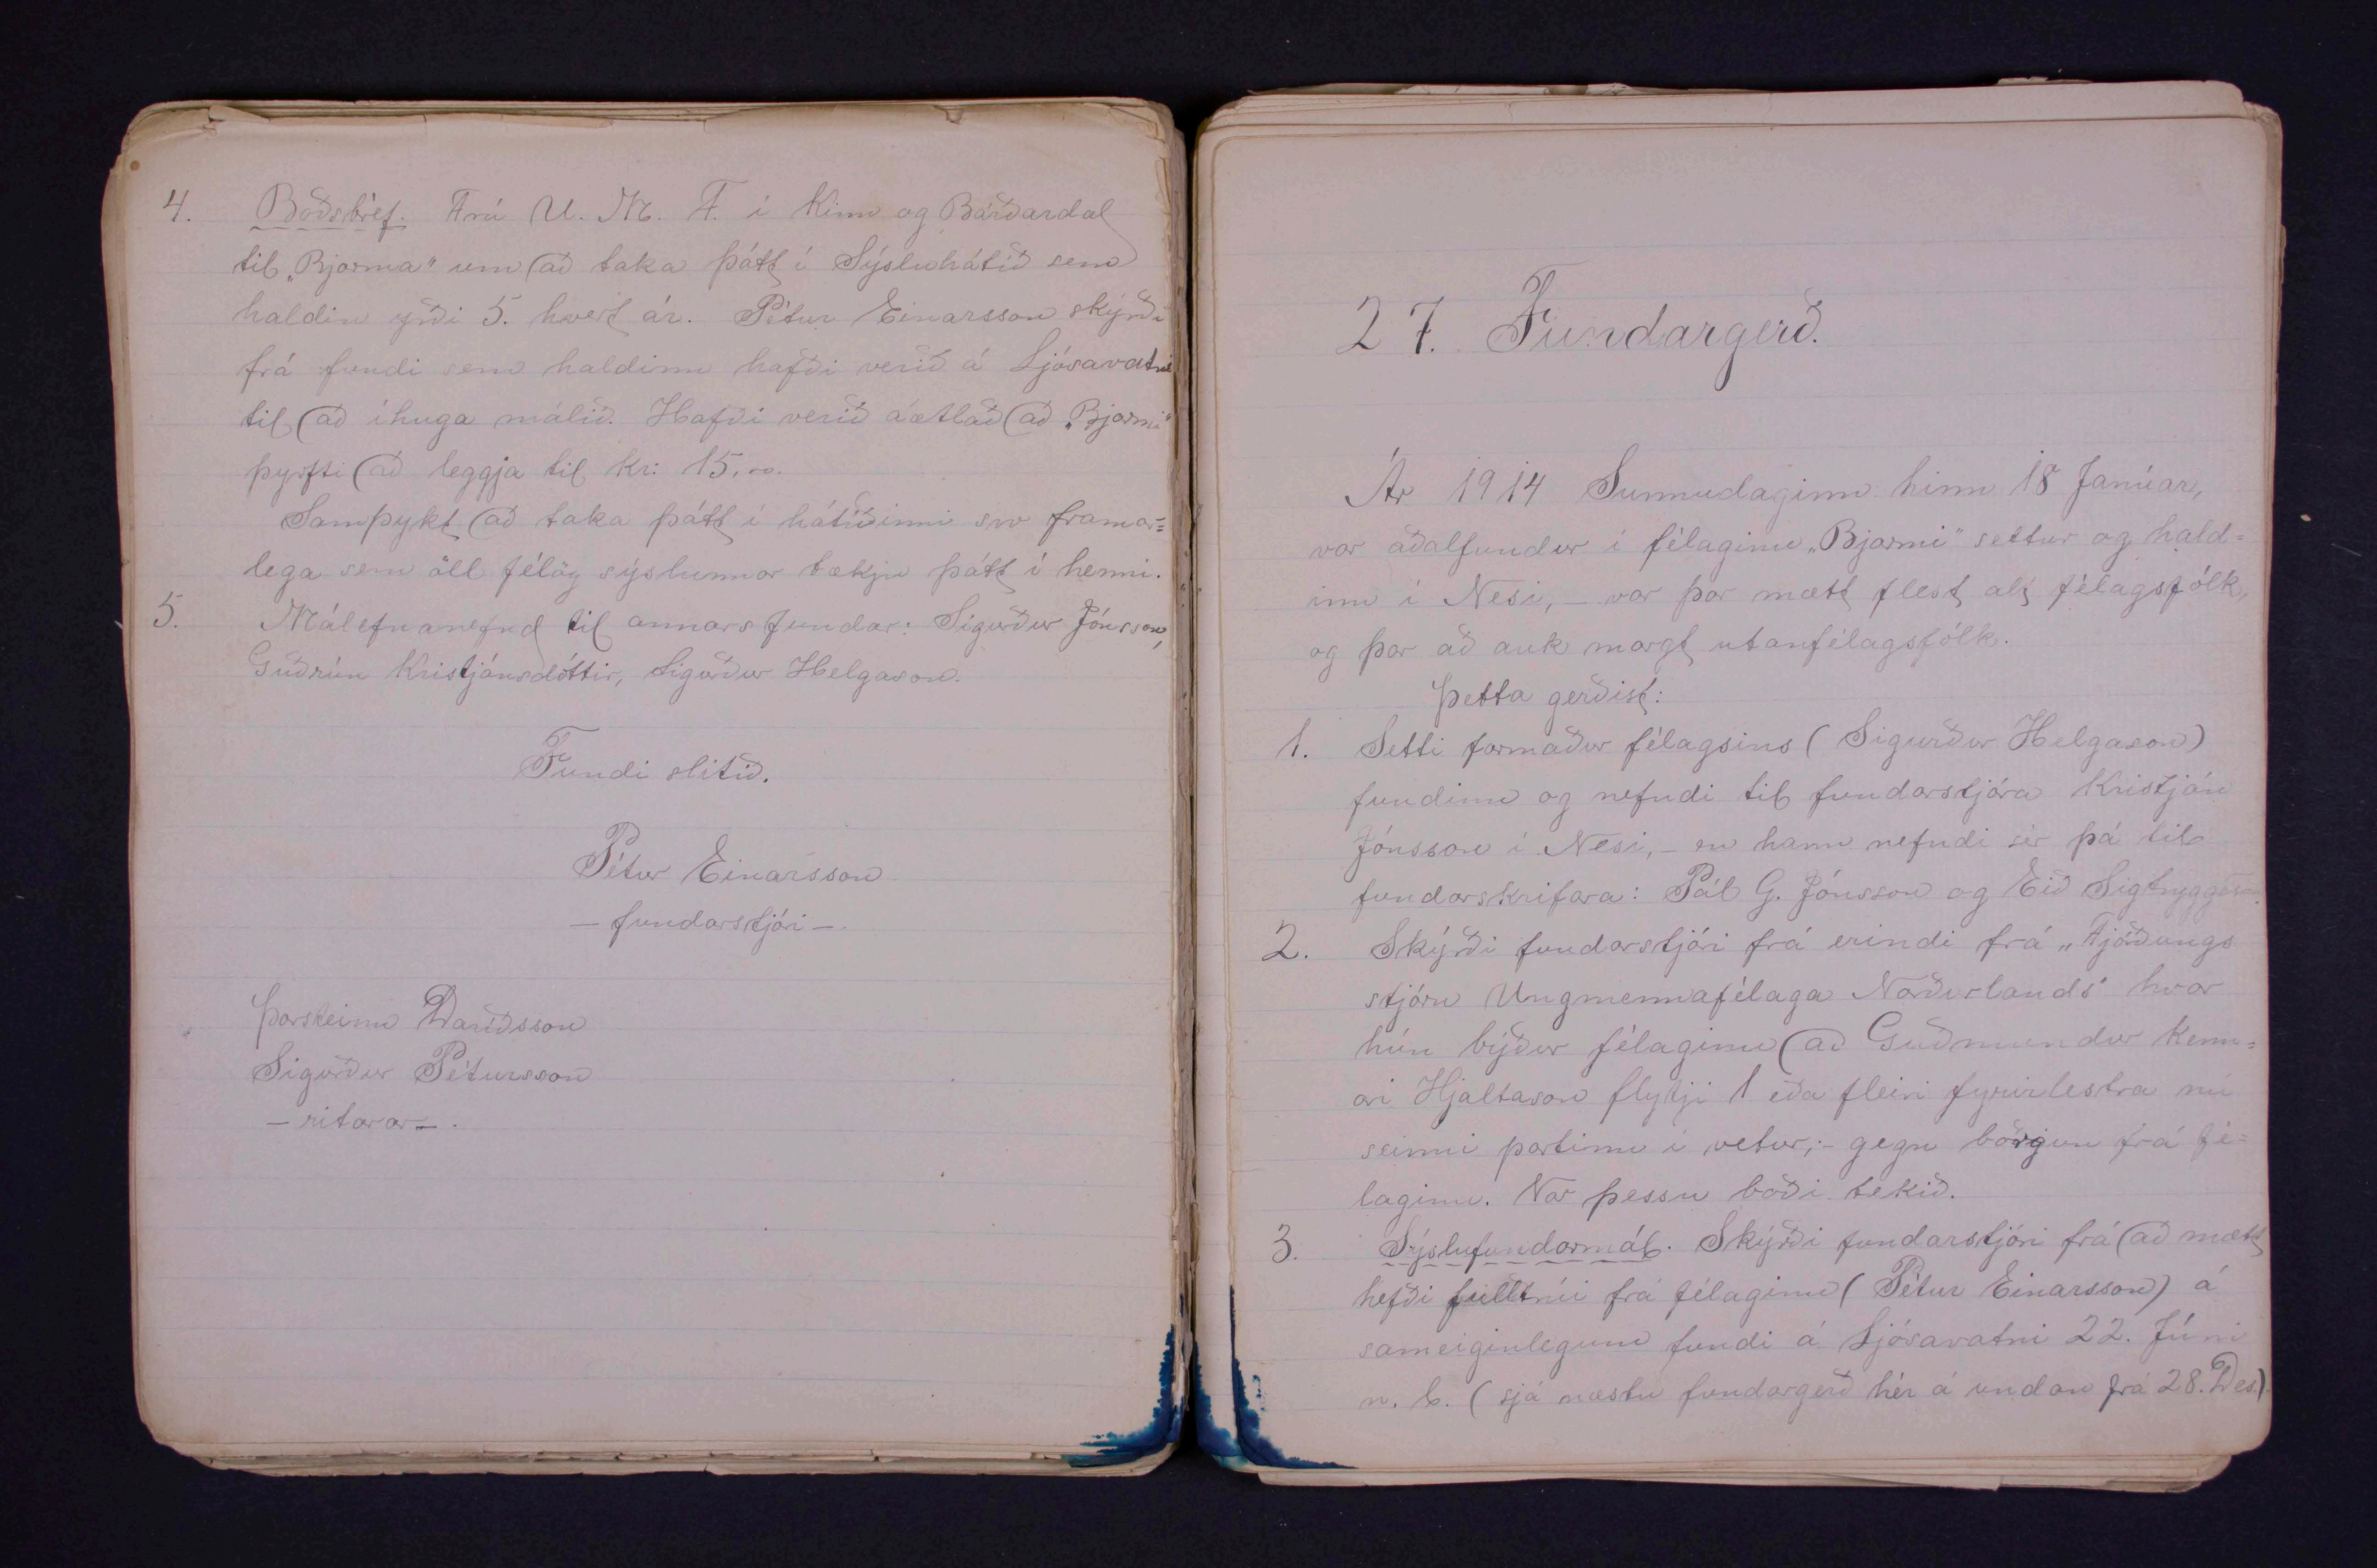 4. Boðsbréf. Frá U. M. F. í Kinn og Bárðardal
til „Bjarma" um að taka þátt í Sýsluhátíð sem
haldin yrði 5. hvert ár. Pétur Einarsson skýrði
frá fundi sem haldinn hafði verið á Ljósavatni
til að íhuga málið. Hafði verið áætlað að „Bjarmi"
þyrfti að leggja til kr: 15,00.
Samþykt að taka þátt í hátíðinni svo framar=
lega sem öll félög sýslunnar tækju þátt í henni.
5. Málefnanefnd til annars fundar: Sigurður Jónsson,
Guðrún Kristjánsdóttir, Sigurður Helgason.
Fundi slitið.
Pétur Einarsson
- fundarstjóri -.
Þorsteinn Davíðsson
Sigurður Pétursson
- ritarar -.
27. Fundargerð.
Ár 1914 Sunnudaginn hinn 18 Janúar,
var aðalfundur í félaginu „Bjarmi" settur og hald=
inn í Nesi, - var þar mætt flest alt félagsfólk,
og þar að auk margt utanfélagsfólk.
Þetta gerðist:
1. Setti formaður félagsins (Sigurður Helgason)
fundinn og nefndi til fundarstjóra Kristján
Jónsson í Nesi, - en hann nefndi sér þá til
fundarskrifara: Pál G. Jónsson og Eið Sigtryggsson.
2. Skýrði fundarstjóri frá erindi frá „Fjórðungs
stjórn Ungmennafélaga Norðurlands" hvar
hún býður félaginu að Guðmundur kenn=
ari Hjaltason flytji 1 eða fleiri fyrirlestra nú
seinni partinn í vetur; - gegn borgun frá fé=
laginu. Var þessu boði tekið.
3. Sýslufundarmál. Skýrði fundarstjóri frá að mætt
hefði fulltrúi frá félaginu (Pétur Einarsson) á
sameiginlegum fundi á Ljósavatni 22. Júní
n. l. (sjá næstu fundargerð hér á undan frá 28. Des.)